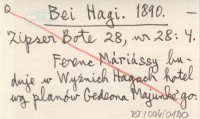 Bei Hagi. 1890. -
Zipser Bote 28, nr 28: 4.
Ferenc Máriássy bu-
duje w Wyżnich Hagach hotel
wg planów Gedeona Majunke'go.